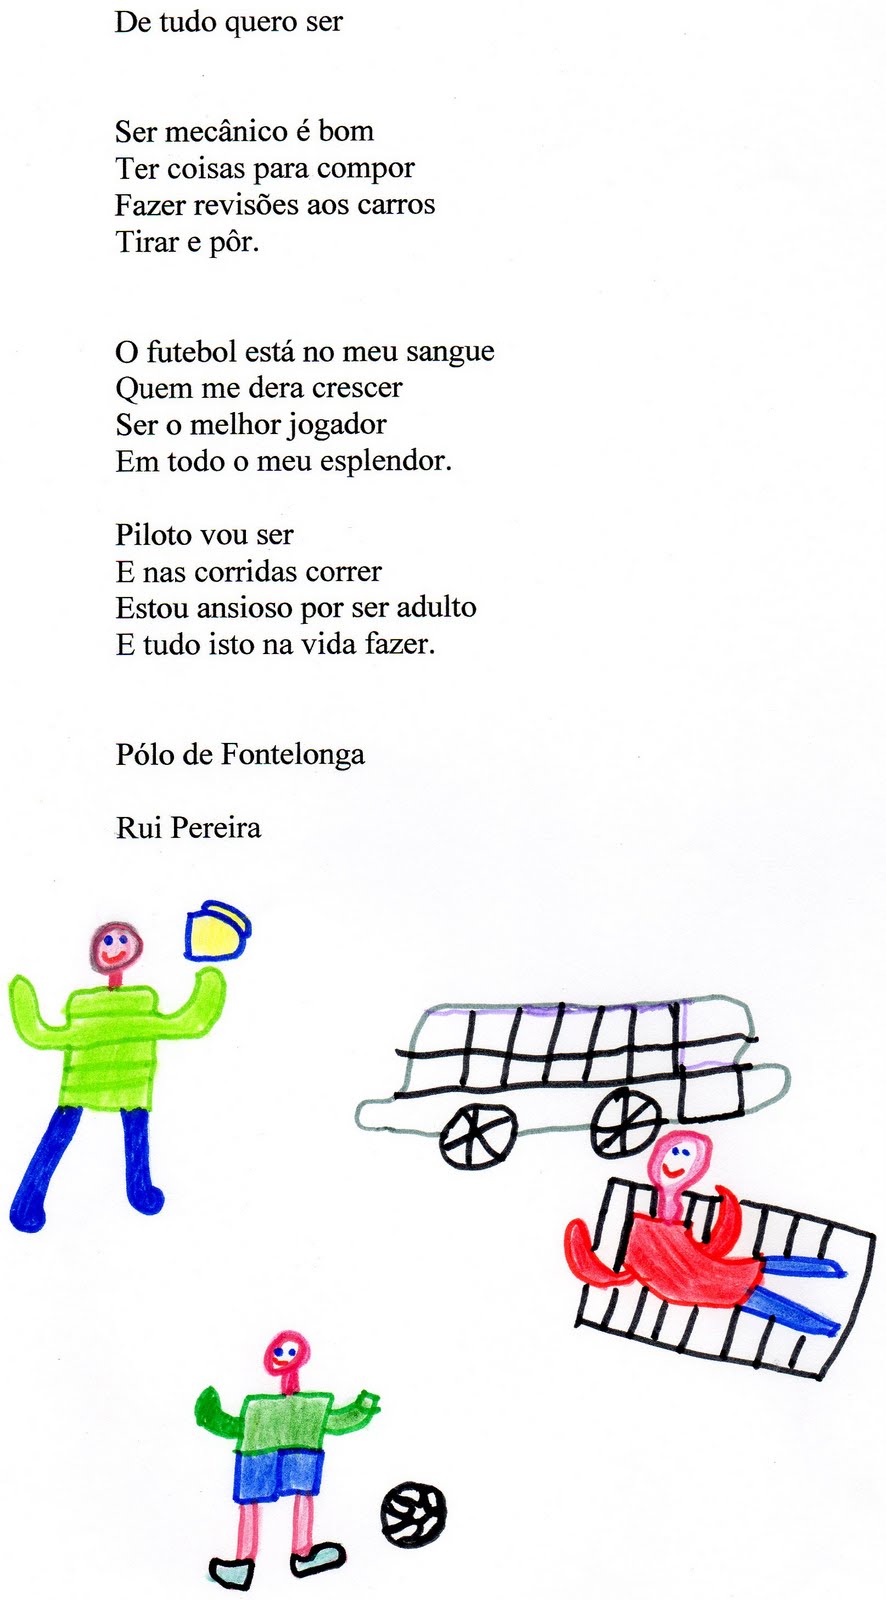 De tudo quero ser
Ser mecânico é bom
Ter coisas para compor
Fazer revisões aos carros
Tirar e pôr.
O futebol está no meu sangue
Quem me dera crescer
Ser o melhor jogador
Em todo o meu esplendor.
Piloto vou ser
E nas corridas correr
Estou ansioso por ser adulto
E tudo isto na vida fazer.
Pólo de Fontelonga
Rui Pereira